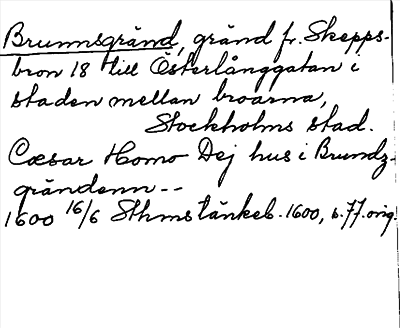 Brunnsgränd, gränd fr. Skepps-
bron 18 till Österlånggatan i
staden mellan broarna,
Stockholms stad.
Cæsar Homo Dej hus i Brundz-
grändenn--
1600 16/6 Sthms tänkeb. 1600, s. 77. orig.